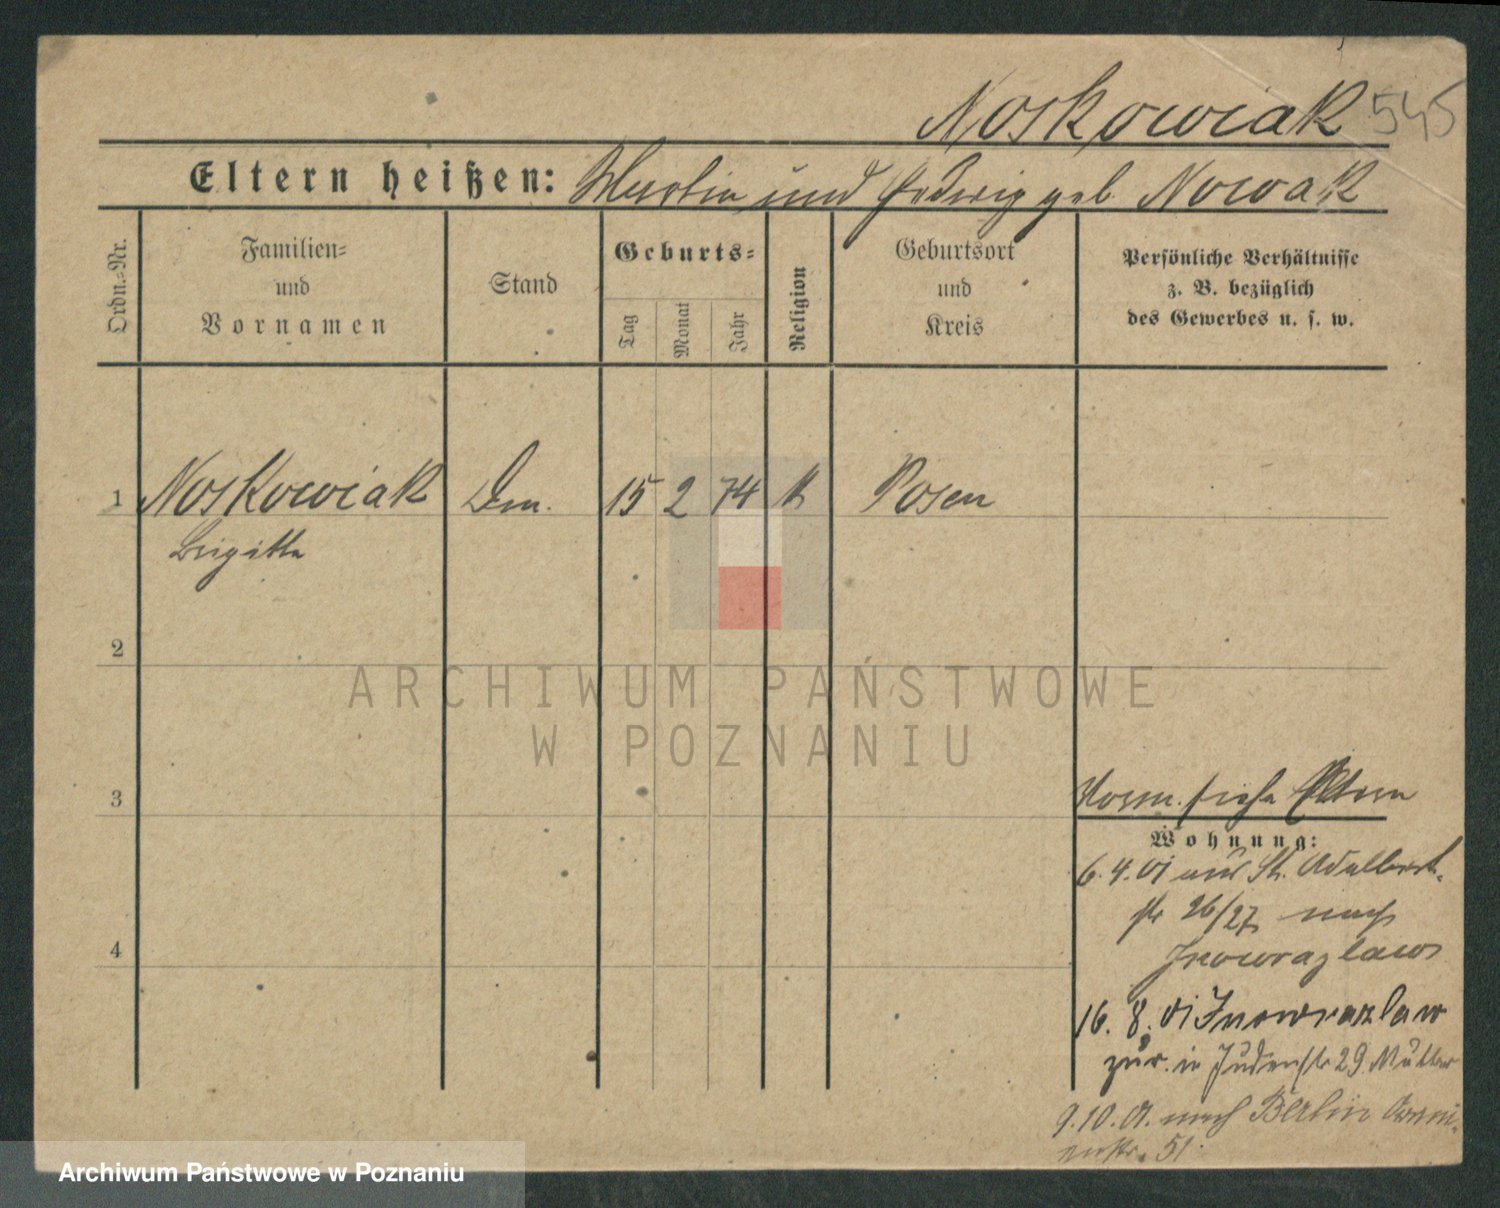 Noskowiak 545
Eltern heißen: Martin und Hedwig geb. Nowak
Ordn.=Nr.
Familien=
und
Vornamen
Stand
Geburts=
Tag
Monat
Jahr
Religion
Geburtsort
und
Kreis
Persönliche Verhältnisse
z. B. bezüglich
des Gewerbes u. s. w.
1 Noskowiak 15 2 74 k Posen
Brigitta
2
ARCHIWUM PAŃSTWOWE
W POZNANIU
3
siehe Eltern
Wohnung:
6. 4. 01 aus St. Adalbert-
str 26/27 nach
Inowrazlaw
4
16. 8. 01 Inowrazlaw
zur. in Judenstr 29. Mutter
9. 10. 01. nach Berlin
51.
Archiwum Państwowe w Poznaniu